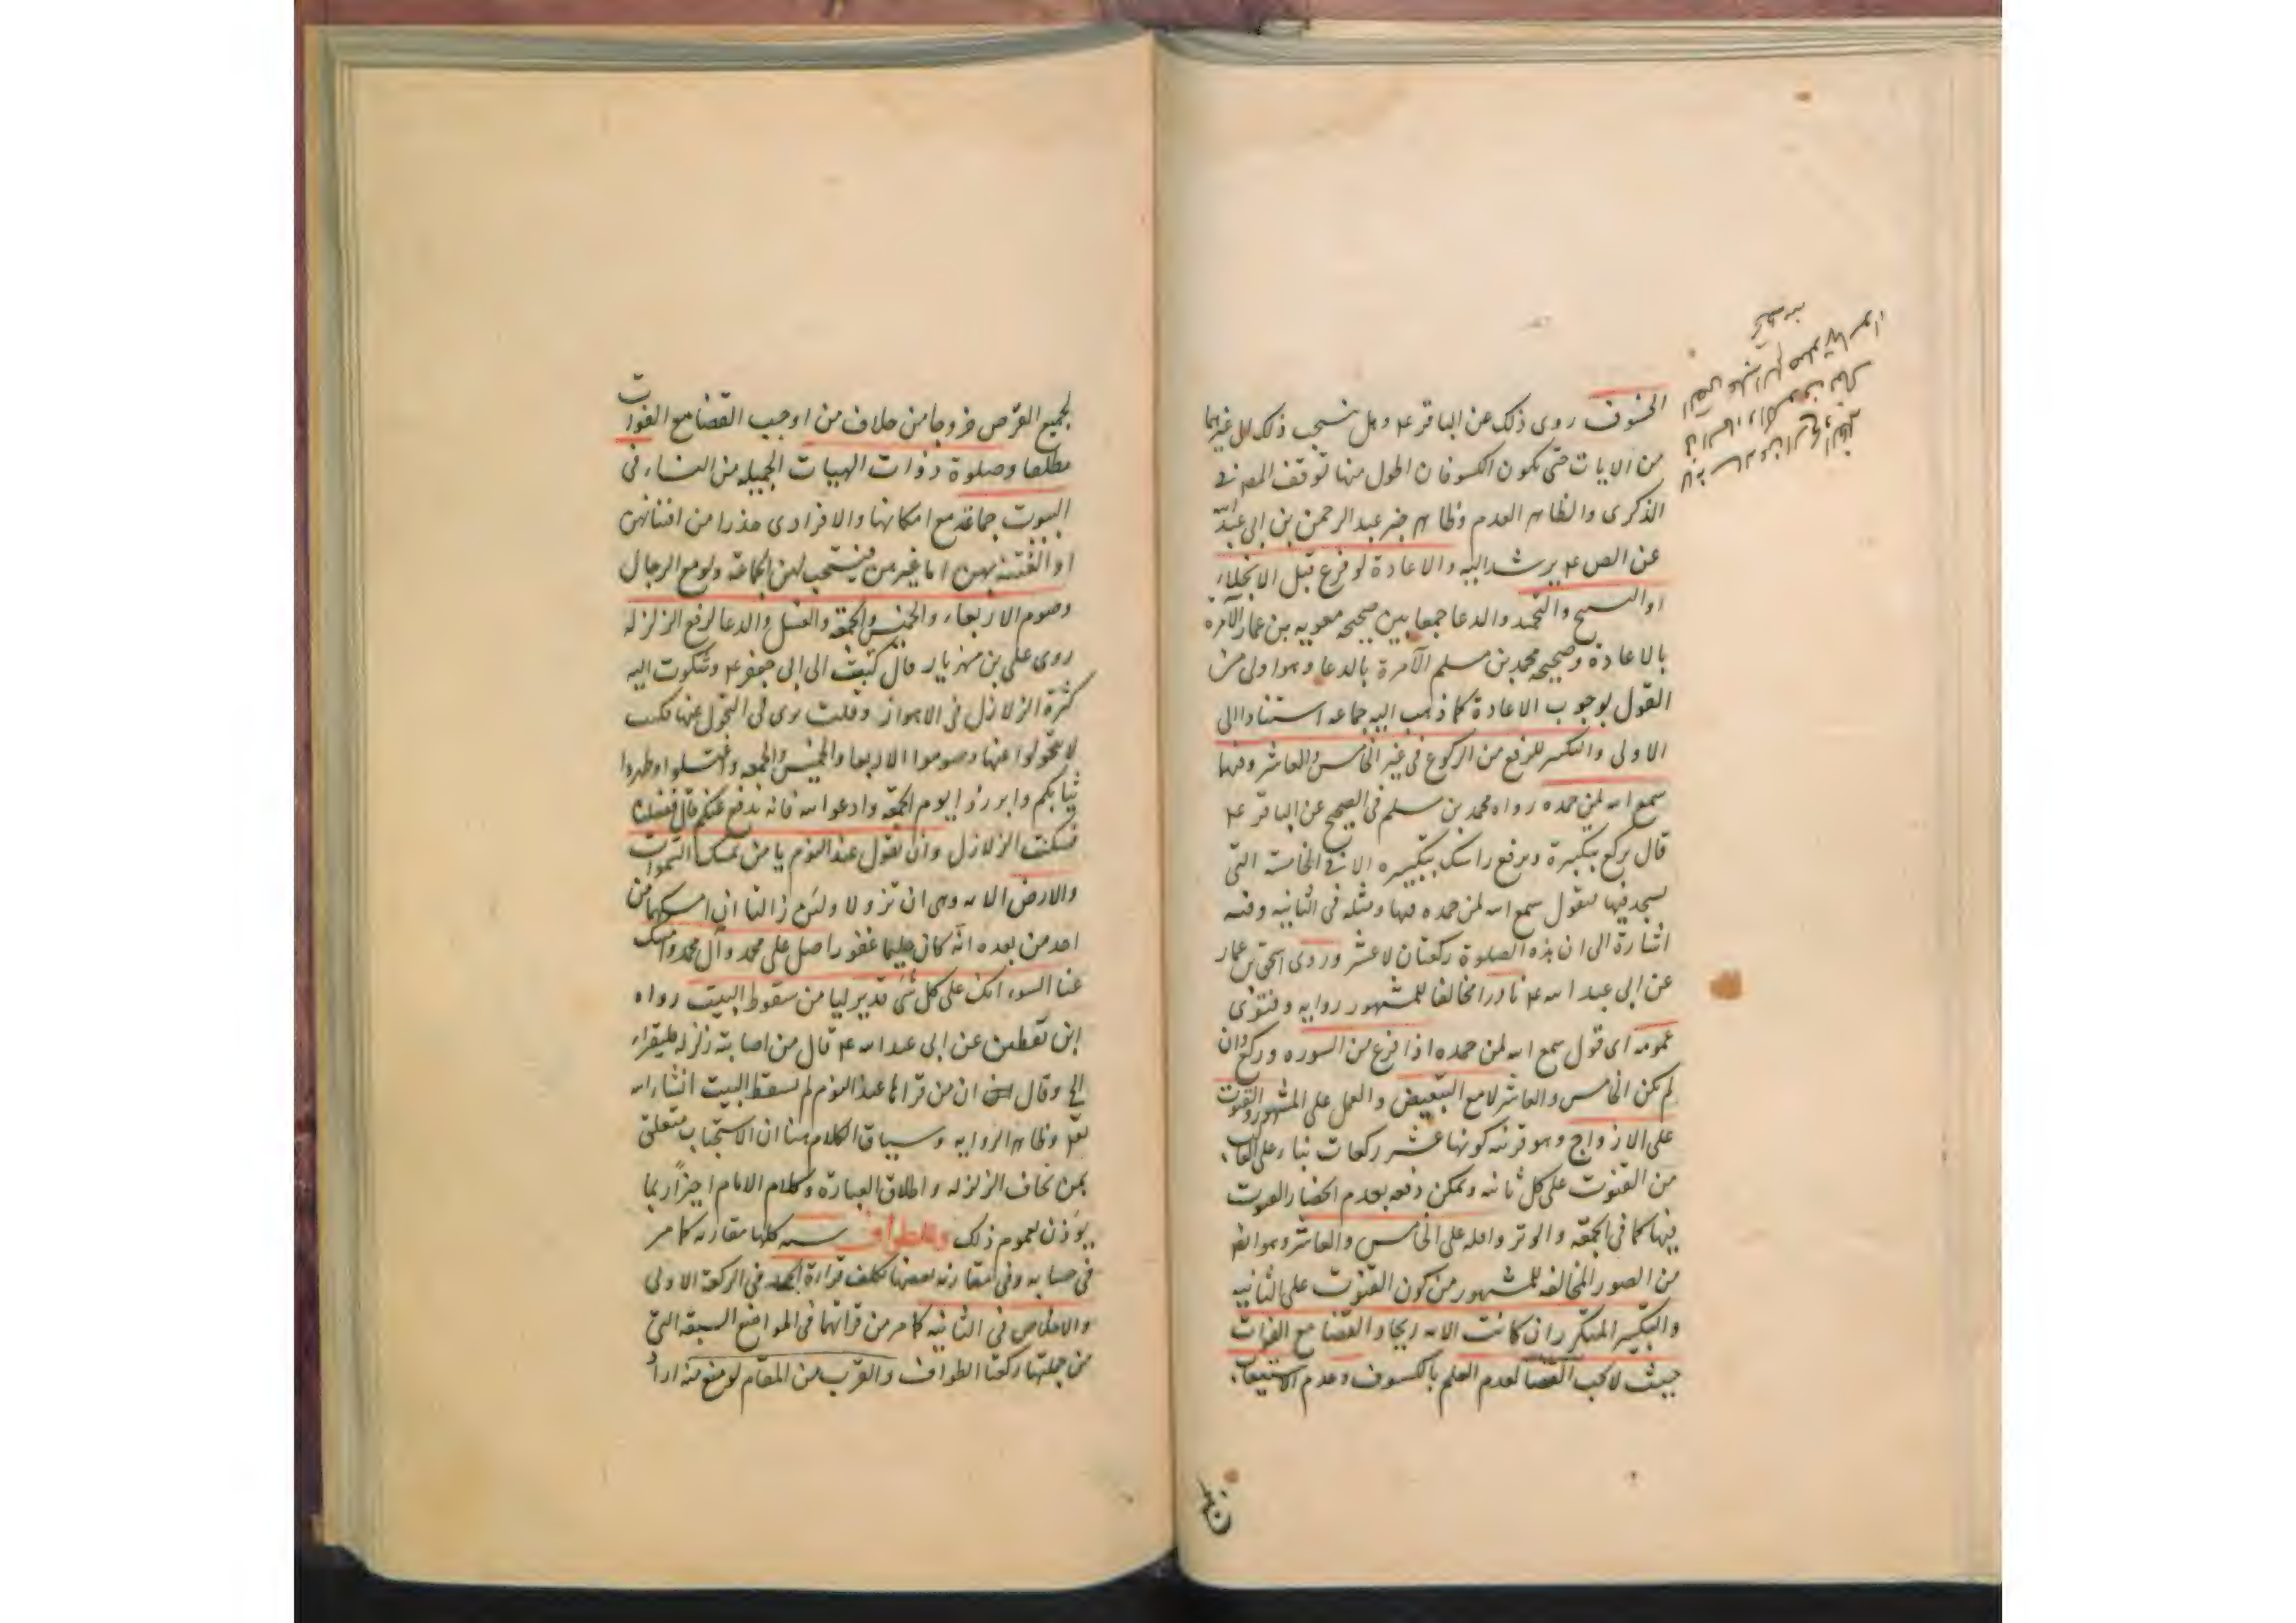 الخسوف روى ذلك عن الباقر ع وهل يستحب ذلك في غيرهما
من الايات حتى يكون الكسوفان اطول منها توقف المصر في
الذكرى والظاهر العدم وظاهر خبر عبد الرحمن بن ابي عبد الله
عن الص ع يرشد اليه والاعادة لو فرغ قبل الانجلاء
او التسبيح والتحميد والدعا جمعا بين صحيحه معويه بن عمار الآمره
بالاعادة وصحيحه محمد بن مسلم الآمرة بالدعا وهو اولى من
القول بوجوب الاعادة كما ذهب اليه جماعه استنادا الى
الاولى والتكبير للرفع من الركوع في غير الخامس والعاشر وفيها
سمع الله لمن حمده رواه محمد بن مسلم في الصحيح عن الباقر ع
قال يركع بتكبيرة ويرفع راسه بتكبيره الا في الخامسة التي
يسجد فيها فيقول سمع الله لمن حمده فيها ومثله في الثانيه وفيه
اشارة الى ان هذه الصلوة ركعتان لا عشر وروى اسحق بن عمار
عن ابي عبد الله ع نادرا مخالفا للمشهور روايه وفتوى
عمومه اى قول سمع الله لمن حمده اذا فرغ من السوره وركع وان
لم يكن الخامس والعاشر لا مع التبعيض والعمل على المشهور والقنوت
على الازواج وهو قرينه كونها عشر ركعات بناء على الغالب
من القنوت على كل ثانيه ويمكن دفعه بعدم انحصار القنوت
فيها كما في الجمعه والوتر واقله على الخامس والعاشر وهو ايضا
من الصور المخالفه للمشهور من كون القنوت على الثانيه
والتكبير المتكرر ان كانت الايه ريحا والقضا مع الفوات
حيث لا يجب القضا لعدم العلم بالكسوف وعدم الاستيعاب
لجميع القرص خروجا من خلاف من اوجب القضا مع الفوات
مطلقا وصلوة ذوات الهيات الجميله من النساء في
البيوت جماعة مع امكانها والا فرادى حذرا من افتتانهن
او الفتنة بهن اما غيرهن فيستحب لهن الجماعة ولو مع الرجال
وصوم الاربعاء والخميس والجمعه والغسل والدعا لرفع الزلزله
روى علي بن مهزيار قال كتبت الى ابي جعفر ع وشكوت اليه
كثرة الزلازل في الاهواز وقلت ترى لي التحول عنها فكتب
لا تتحولوا عنها وصوموا الاربعا والخميس والجمعه واغتسلوا وطهروا
ثيابكم وابرزوا يوم الجمعه وادعوا الله فانه يدفع عنكم قال ففعلنا
فسكنت الزلازل وان يقول عند النوم يا من يمسك السموات
والارض الايه وهي ان تزولا ولئن زالتا ان امسكهما من
احد من بعده انه كان حليما غفورا صل على محمد وآل محمد وامسك
عنا السوء انك على كل شئ قدير ليأمن سقوط البيت رواه
ابن يقطين عن ابي عبد الله ع قال من اصابته زلزله فليقراء
الخ وقال ان من قراها عند النوم لم يسقط البيت انشاء الله
تعالى وظاهر الروايه وسياق الكلام هنا ان الاستحباب متعلق
بمن يخاف الزلزله واطلاق العبارة وكلام الامام اخيرا ربما
يوذن بعموم ذلك وللطواف سته كلها مقارنه كما مر
في حسابه وفي مقارنه بعضها تكلف قراءة الحمد في الركعة الاولى
والاخلاص في الثانيه كما مر من قرائتهما في المواضع السبعه التي
من جملتها ركعتا الطواف والقرب من المقام لو منع منه اداء